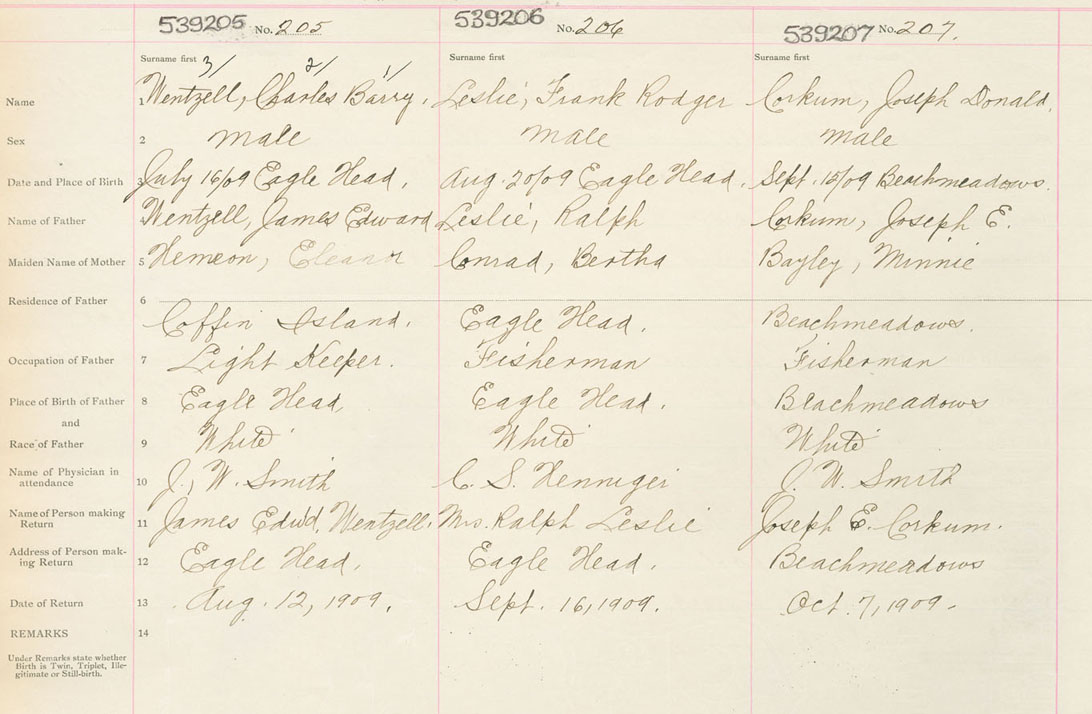 539205 No. 205 539206 No. 206 539207 No. 207.
Surname first Surname first Surname first
3/ 2/ 1/
Name 1 Wentzell, Charles Barry. Leslie, Frank Rodger Corkum, Joseph Donald.
Sex 2 Male Male Male
Date and Place of Birth 3 July 16/09 Eagle Head. Aug. 20/09 Eagle Head. Sept. 15/09 Beachmeadows.
Name of Father 4 Wentzell, James Edward Leslie, Ralph Corkum, Joseph E.
Maiden Name of Mother 5 Hemeon, Eleanor Conrad, Bertha Bayley, Minnie
Residence of Father 6 Coffin Island. Eagle Head. Beachmeadows.
Occupation of Father 7 Light Keeper. Fisherman Fisherman
Place of Birth of Father 8 Eagle Head Eagle Head. Beachmeadows
and
Race of Father 9 White White White
Name of Physician in
attendance 10 J. W. Smith C. S. Henniger J. W. Smith
Name of Person making
Return 11 James Edw'd Wentzell. Mrs. Ralph Leslie Joseph E. Corkum.
Address of Person mak-
ing Return 12 Eagle Head. Eagle Head. Beachmeadows
Date of Return 13 Aug. 12, 1909. Sept. 16, 1909. Oct. 7, 1909.
REMARKS 14
Under Remarks state whether
Birth is Twin, Triplet, Ille-
gitimate or Still-birth.